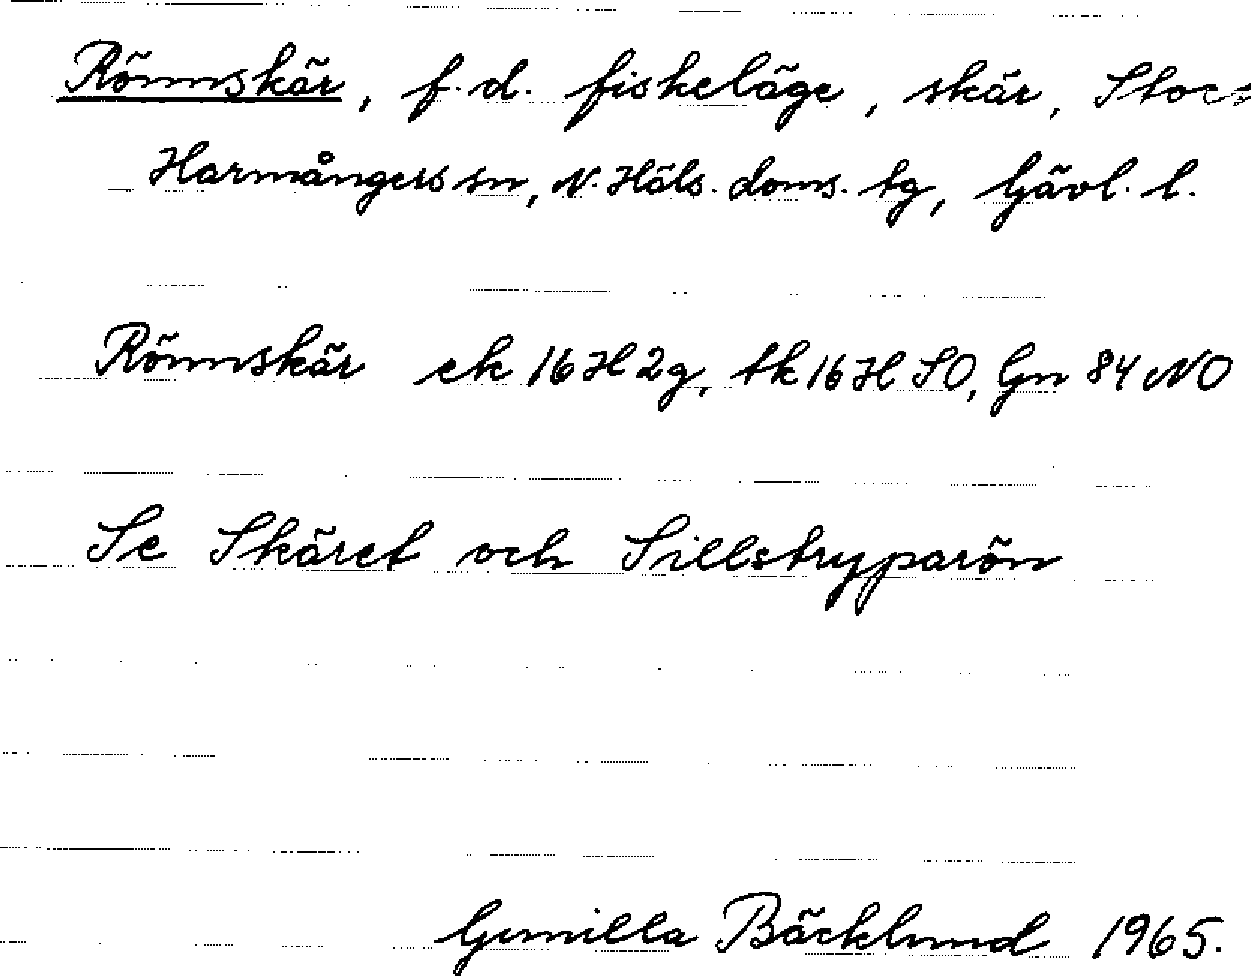 Rönnskär, f.d. fiskeläge, skär,
Harmångers sn, N. Häls. doms. tg, Gävl. l.
Rönnskär ek 16H2g, tk 16H SO, Gn 84 NO
Se Skäret och Sillstryparön
Gunilla Bäcklund 1965.